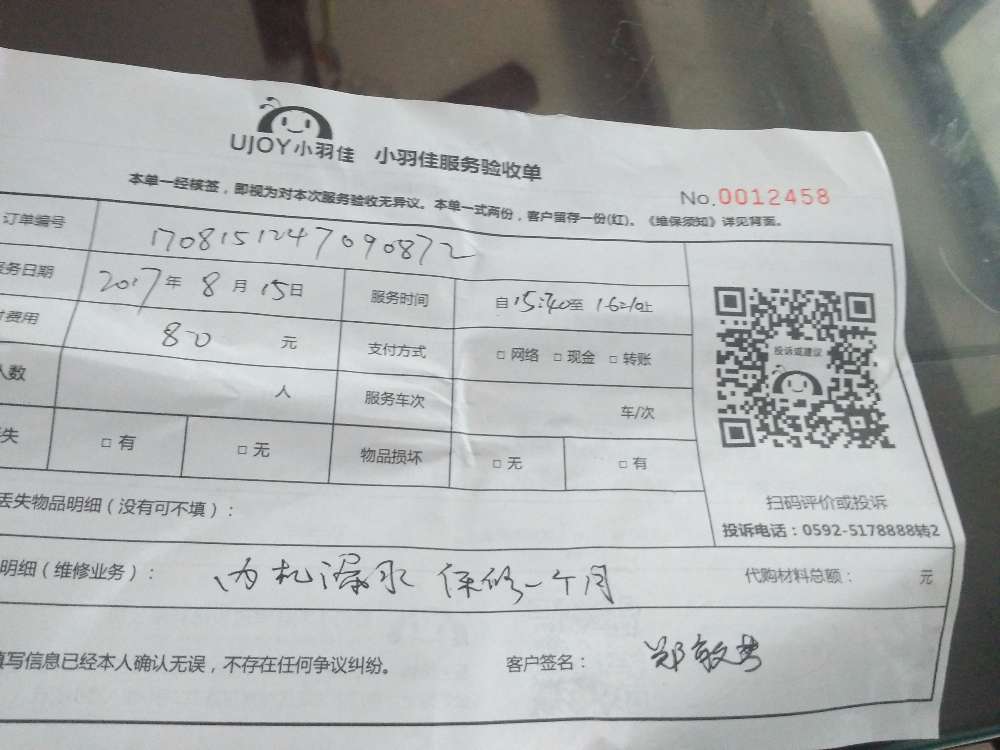 UJOY小羽佳 小羽佳服务验收单
本单一经核签，即视为对本次服务验收无异议。本单一式两份，客户留存一份(红)。《维保须知》详见背面。
No.0012458
订单编号 1708151247090872
务日期 2017年 8月 15日 服务时间 自15:40至16:10止
费用 80 元 支付方式 □ 网络 □ 现金 □ 转账
人数 人 服务车次 车/次
失 □ 有 □ 无 物品损坏 □ 无 □ 有
投诉或建议
扫码评价或投诉
投诉电话：0592-5178888转2
丢失物品明细（没有可不填）：
明细（维修业务）： 内机漏水 保修一个月 代购材料总额： 元
填写信息已经本人确认无误，不存在任何争议纠纷。 客户签名： 郑敏